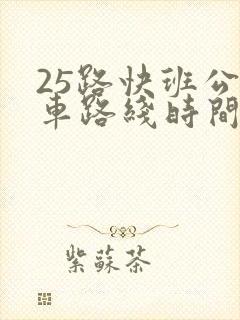 25路快班公
車路綫時間
紫蘇茶